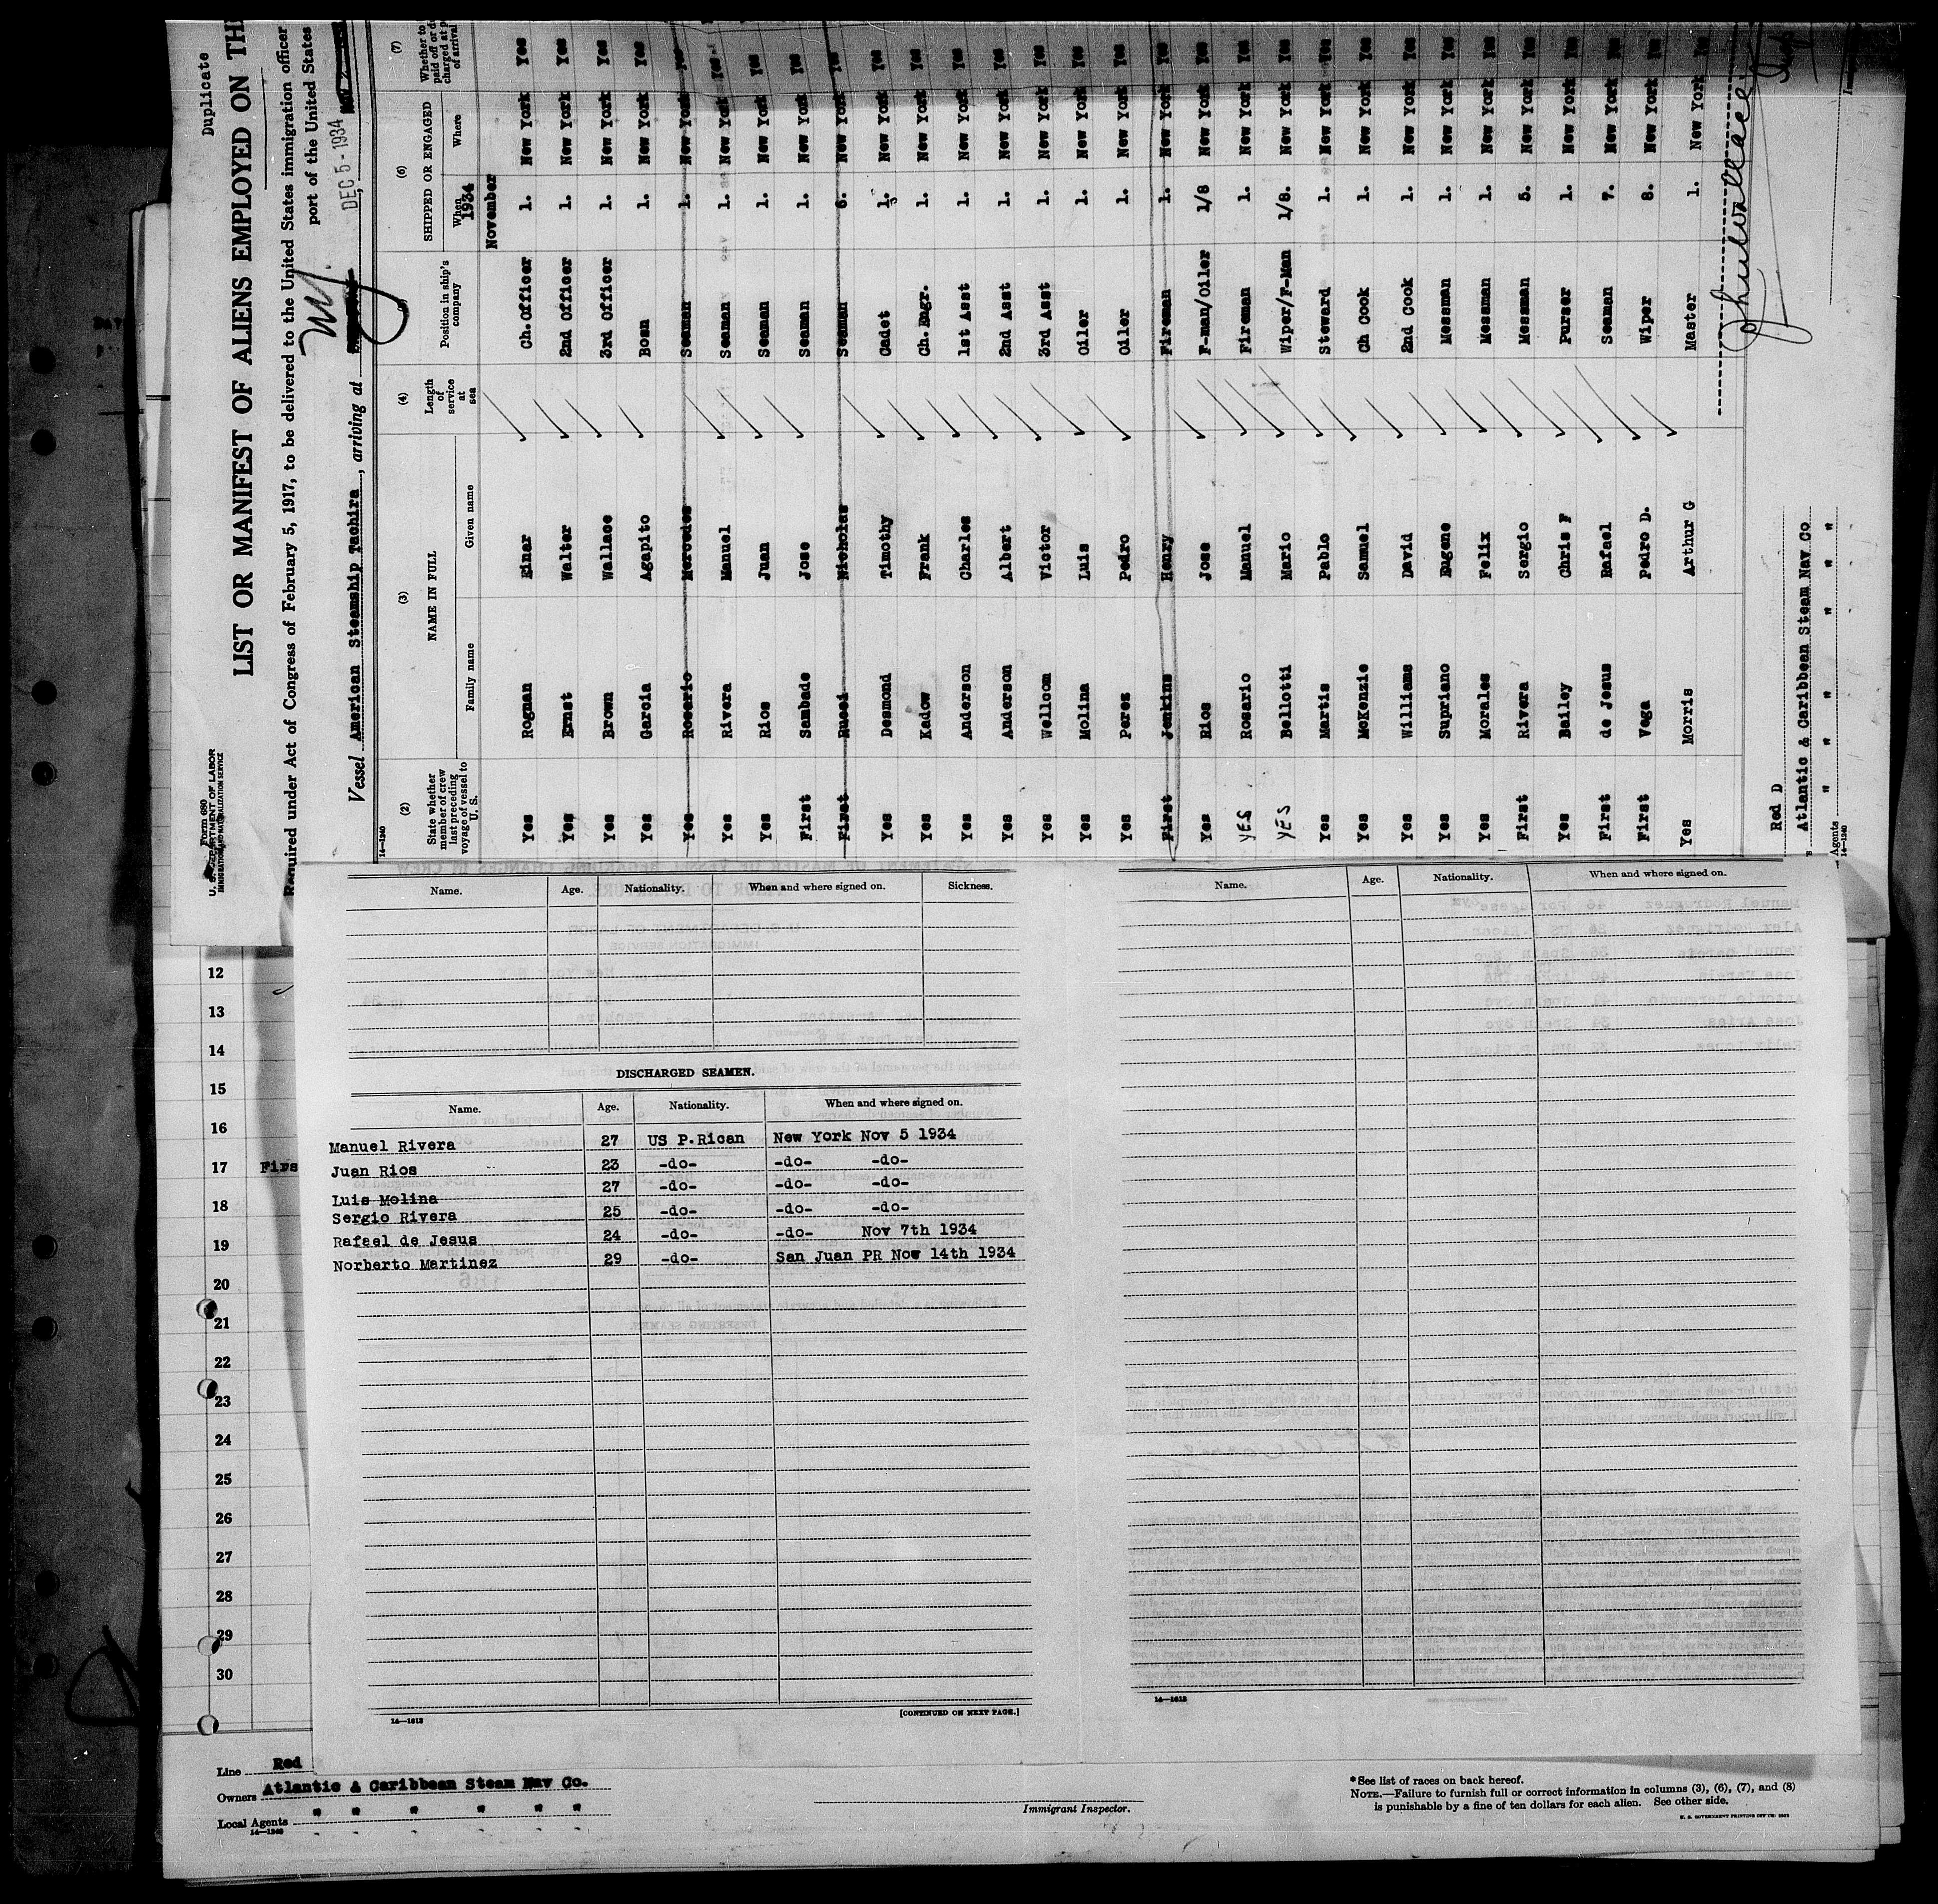 Duplicate
Form 680
U. S. DEPARTMENT OF LABOR
IMMIGRATION AND NATURALIZATION SERVICE
LIST OR MANIFEST OF ALIENS EMPLOYED ON TH
Required under Act of Congress of February 5, 1917, to be delivered to the United States immigration officer
port of the United States
Vessel American Steamship Tachira, arriving at DEC 5 - 1934
14—1240
(2) (3) (4) (6) (7)
State whether member of crew last preceding voyage of vessel to U. S.
NAME IN FULL
Family name Given name
Length of service at sea
Position in ship's company
SHIPPED OR ENGAGED
When Where
1934
November
Yes Rognan Einar Ch.Officer 1. New York Yes
Yes Ernst Walter 2nd Officer 1. New York Yes
Yes Brown Wallace 3rd Officer 1. New York Yes
Yes Garcia Agapito Bosn 1. New York Yes
Yes Rosario Mercedes Seaman 1. New York Yes
Yes Rivera Manuel Seaman 1. New York Yes
Yes Rios Juan Seaman 1. New York Yes
First Sambade Jose Seaman 1. New York Yes
First Rucci Nicholas Seaman 6. New York Yes
Yes Desmond Timothy Cadet 1. New York Yes
Yes Kadow Frank Ch.Engr. 1. New York Yes
Yes Anderson Charles 1st Asst 1. New York Yes
Yes Anderson Albert 2nd Asst 1. New York Yes
Yes Wellcom Victor 3rd Asst 1. New York Yes
Yes Molina Luis Oiler 1. New York Yes
Yes Perez Pedro Oiler 1. New York Yes
First Jenkins Henry Fireman 1. New York Yes
Yes Rios Jose F-man/Oiler 1/8 New York Yes
YES Rosario Manuel Fireman 1. New York Yes
YES Bellotti Mario Wiper/F-Man 1/8. New York Yes
Yes Martis Pablo Steward 1. New York Yes
Yes McKenzie Samuel Ch Cook 1. New York Yes
Yes Williams David 2nd Cook 1. New York Yes
Yes Supriano Eugene Messman 1. New York Yes
Yes Morales Felix Messman 1. New York Yes
First Rivera Sergio Messman 5. New York Yes
Yes Bailey Chris F Purser 1. New York Yes
First de Jesus Rafael Seaman 7. New York Yes
First Vega Pedro D. Wiper 8. New York Yes
Yes Morris Arthur G Master 1. New York Yes
Red D
Atlantic & Caribbean Steam Nav Co
Agents " " " " "
14—1240
Name. Age. Nationality. When and where signed on. Sickness.
Name. Age. Nationality. When and where signed on.
DISCHARGED SEAMEN.
Name. Age. Nationality. When and where signed on.
Manuel Rivera 27 US P.Rican New York Nov 5 1934
Juan Rios 23 -do- -do- -do-
Luis Molina 27 -do- -do- -do-
Sergio Rivera 25 -do- -do- -do-
Rafael de Jesus 24 -do- -do- Nov 7th 1934
Norberto Martinez 29 -do- San Juan PR Nov 14th 1934
14—1613
[CONTINUED ON NEXT PAGE.]
14—1613
12
13
14
15
16
17 Firs
18
19
20
21
22
23
24
25
26
27
28
29
30
Line Red
Owners Atlantic & Caribbean Steam Nav Co.
Local Agents " " " " " "
14—1240
Immigrant Inspector.
*See list of races on back hereof.
NOTE.—Failure to furnish full or correct information in columns (3), (6), (7), and (8)
is punishable by a fine of ten dollars for each alien. See other side.